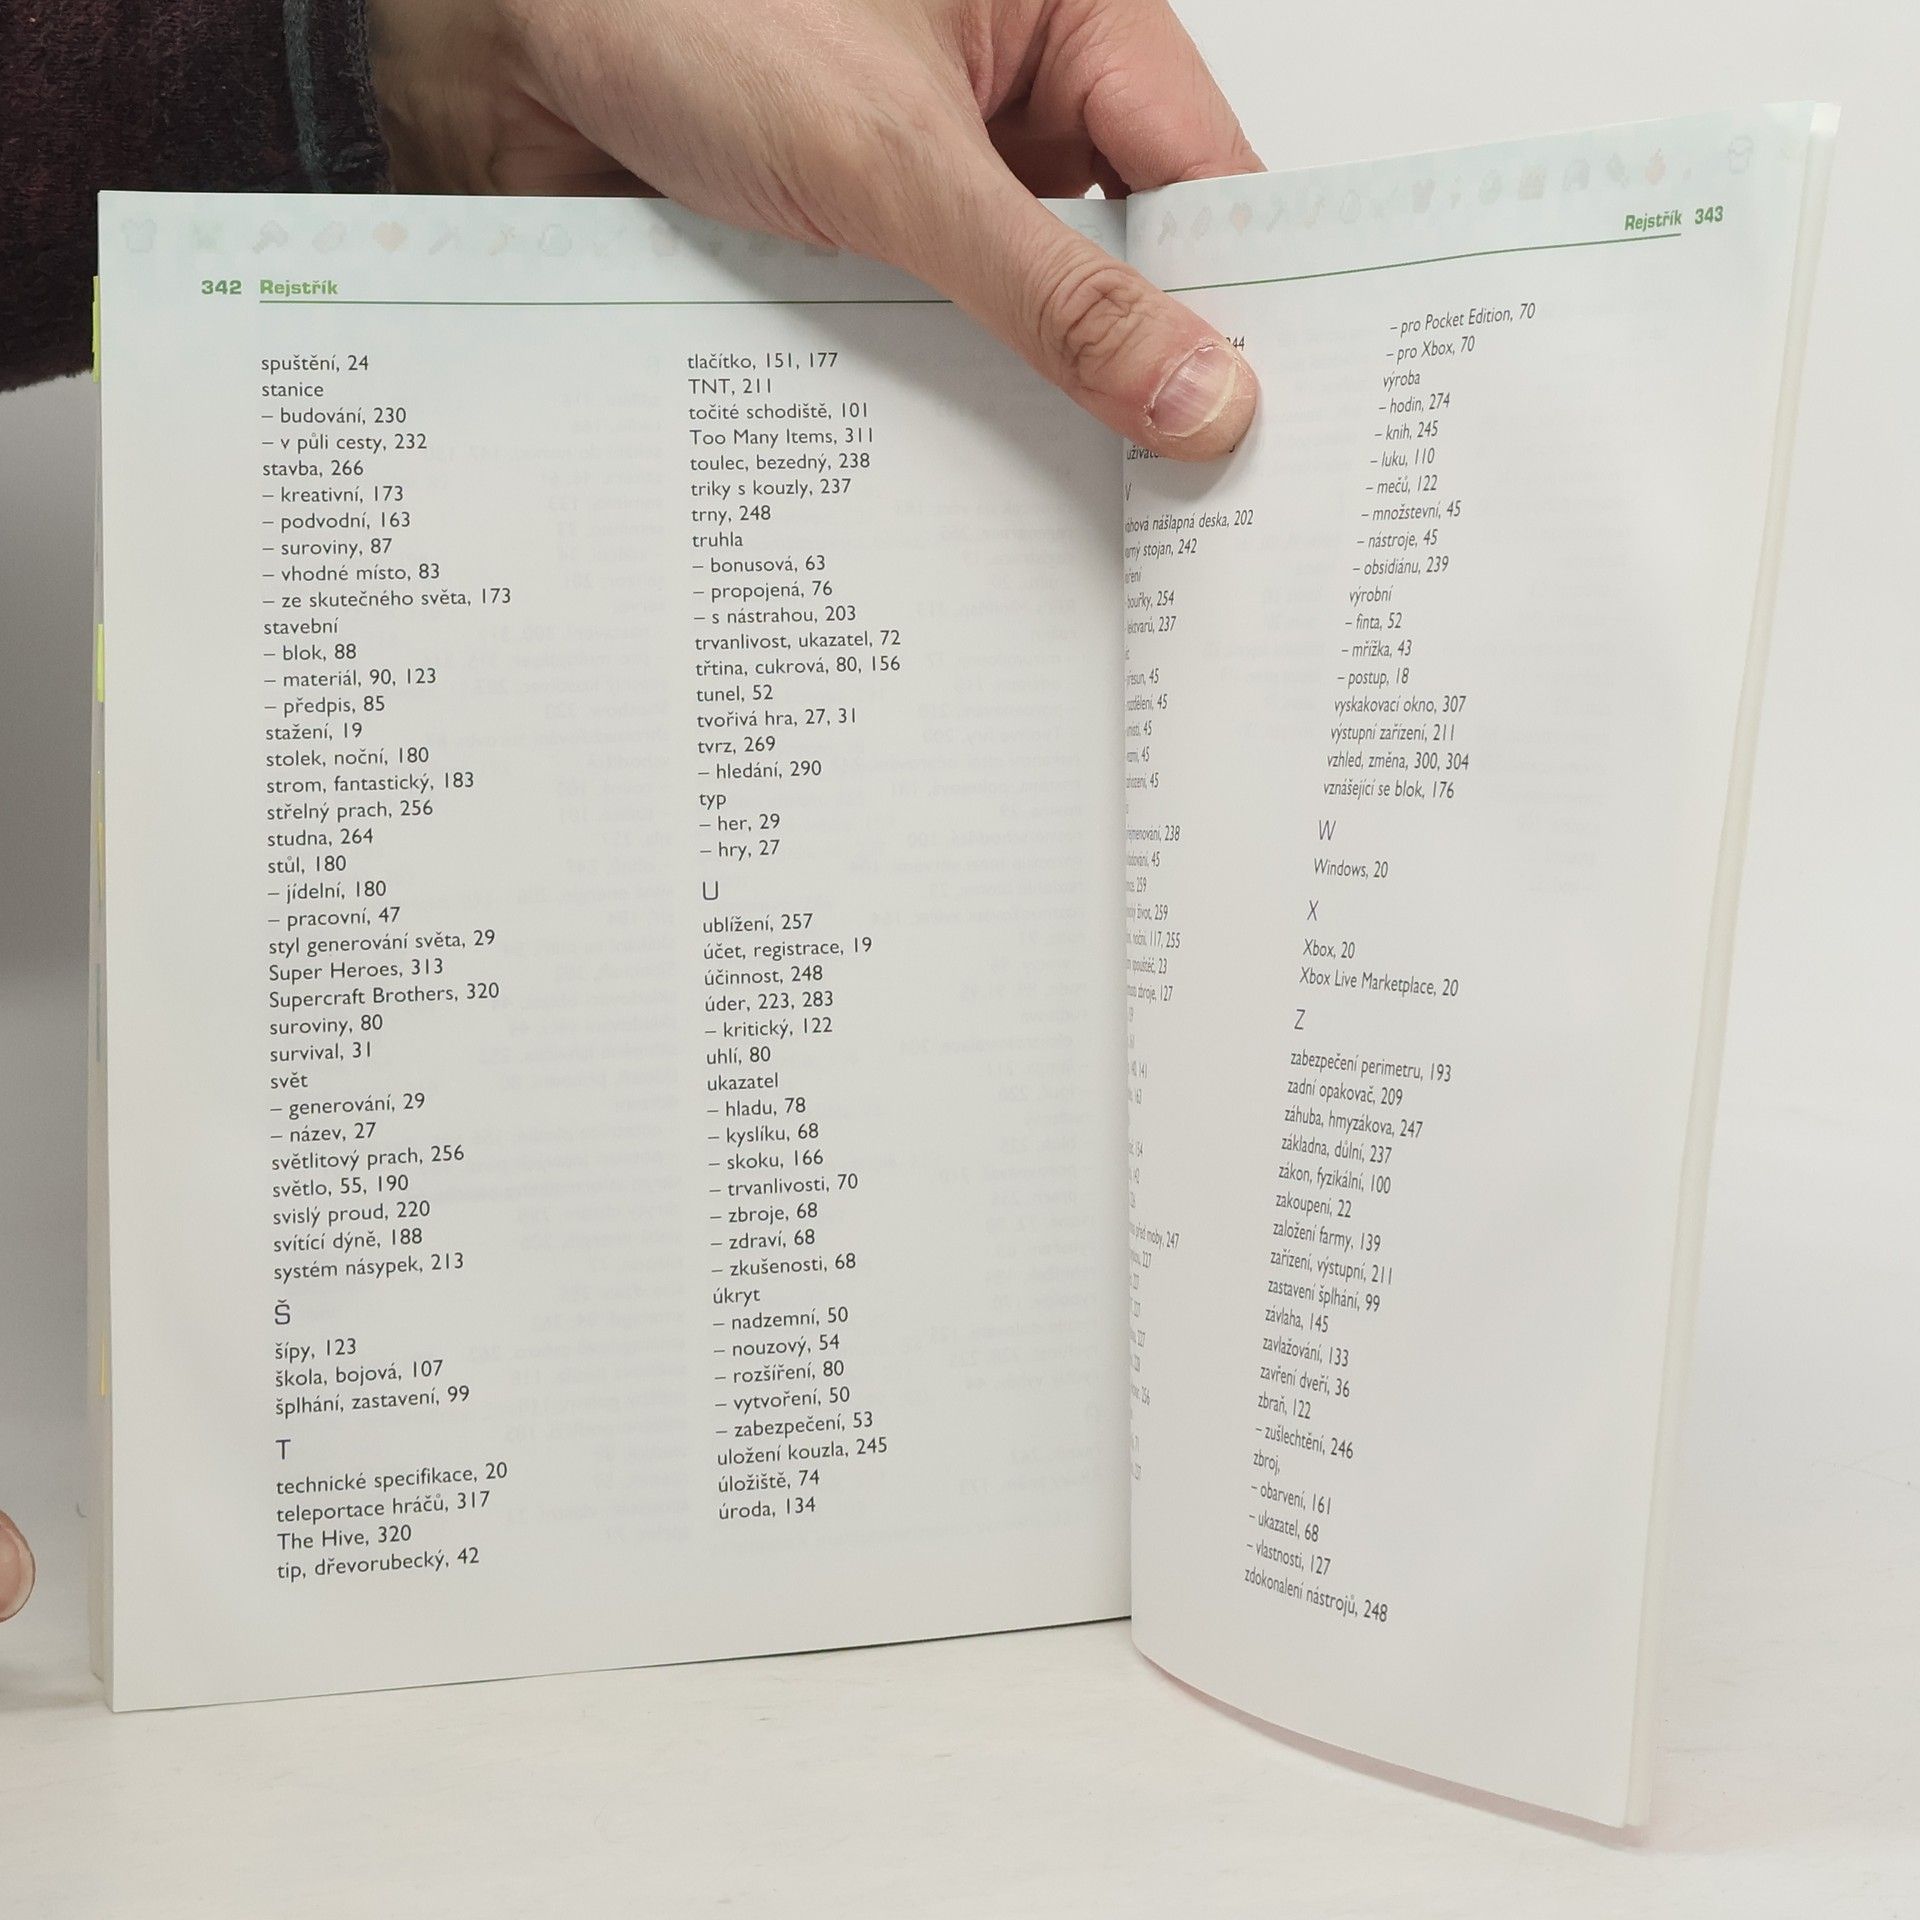 342 Rejstřík
spuštění, 24
stanice
– budování, 230
– v půli cesty, 232
stavba, 266
– kreativní, 173
– podvodní, 163
– suroviny, 87
– vhodné místo, 83
– ze skutečného světa, 173
stavební
– blok, 88
– materiál, 90, 123
– předpis, 85
stažení, 19
stolek, noční, 180
strom, fantastický, 183
střelný prach, 256
studna, 264
stůl, 180
– jídelní, 180
– pracovní, 47
styl generování světa, 29
Super Heroes, 313
Supercraft Brothers, 320
suroviny, 80
survival, 31
svět
– generování, 29
– název, 27
světlitový prach, 256
světlo, 55, 190
svislý proud, 220
svítící dýně, 188
systém násypek, 213
Š
šípy, 123
škola, bojová, 107
šplhání, zastavení, 99
T
technické specifikace, 20
teleportace hráčů, 317
The Hive, 320
tip, dřevorubecký, 42
tlačítko, 151, 177
TNT, 211
točité schodiště, 101
Too Many Items, 311
toulec, bezedný, 238
triky s kouzly, 237
trny, 248
truhla
– bonusová, 63
– propojená, 76
– s nástrahou, 203
trvanlivost, ukazatel, 72
třtina, cukrová, 80, 156
tunel, 52
tvořivá hra, 27, 31
tvrz, 269
– hledání, 290
typ
– her, 29
– hry, 27
U
ublížení, 257
účet, registrace, 19
účinnost, 248
úder, 223, 283
– kritický, 122
uhlí, 80
ukazatel
– hladu, 78
– kyslíku, 68
– skoku, 166
– trvanlivosti, 70
– zbroje, 68
– zdraví, 68
– zkušenosti, 68
úkryt
– nadzemní, 50
– nouzový, 54
– rozšíření, 80
– vytvoření, 50
– zabezpečení, 53
uložení kouzla, 245
úložiště, 74
úroda, 134
Rejstřík 343
V
nášlapná deska, 202
stojan, 242
bouřky, 254
lektvarů, 237
přesun, 45
rozdělení, 45
45
45
45
238
45
259
život, 259
noční, 117, 255
spouštěč, 23
zbroje, 127
před moby, 247
– pro Pocket Edition, 70
– pro Xbox, 70
výroba
– hodin, 274
– knih, 245
– luku, 110
– mečů, 122
– množstevní, 45
– nástroje, 45
– obsidiánu, 239
výrobní
– finta, 52
– mřížka, 43
– postup, 18
vyskakovací okno, 307
výstupní zařízení, 211
vzhled, změna, 300, 304
vznášející se blok, 176
W
Windows, 20
X
Xbox, 20
Xbox Live Marketplace, 20
Z
zabezpečení perimetru, 193
zadní opakovač, 209
záhuba, hmyzákova, 247
základna, důlní, 237
zákon, fyzikální, 100
zakoupení, 22
založení farmy, 139
zařízení, výstupní, 211
zastavení šplhání, 99
závlaha, 145
zavlažování, 133
zavření dveří, 36
zbraň, 122
– zušlechtění, 246
zbroj,
– obarvení, 161
– ukazatel, 68
– vlastnosti, 127
zdokonalení nástrojů, 248